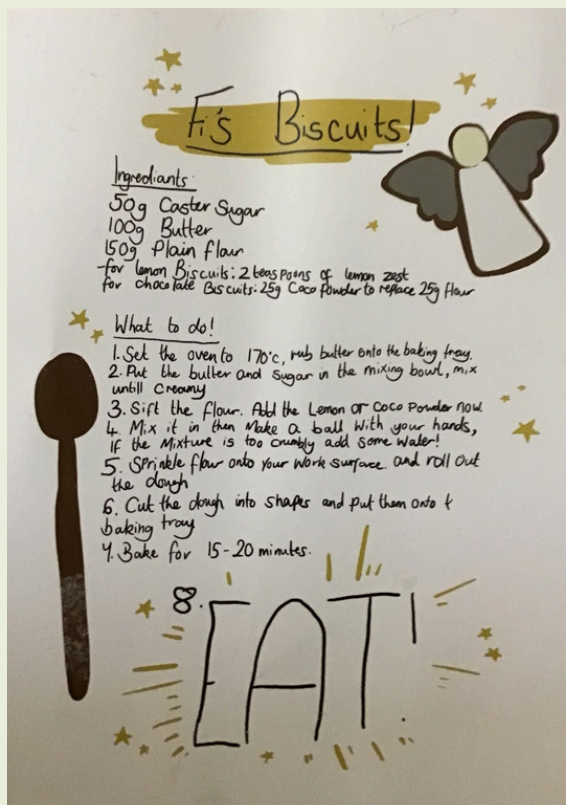 Fi's Biscuits!
Ingrediants
50g Caster Sugar
100g Butter
150g Plain flour
for lemon Biscuits: 2 teaspoons of lemon zest
for chocolate Biscuits: 25g Coco Powder to replace 25g flour
What to do!
1. Set the oven to 170°c, rub butter onto the baking tray.
2. Put the butter and sugar in the mixing bowl, mix
untill creamy
3. Sift the flour. Add the Lemon or Coco Powder now.
4. Mix it in then Make a ball with your hands,
if the Mixture is too crumbly add some water!
5. Sprinkle flour onto your work surface. and roll out
the dough
6. Cut the dough into shapes and put them onto t
baking tray
7. Bake for 15-20 minutes.
8. EAT!